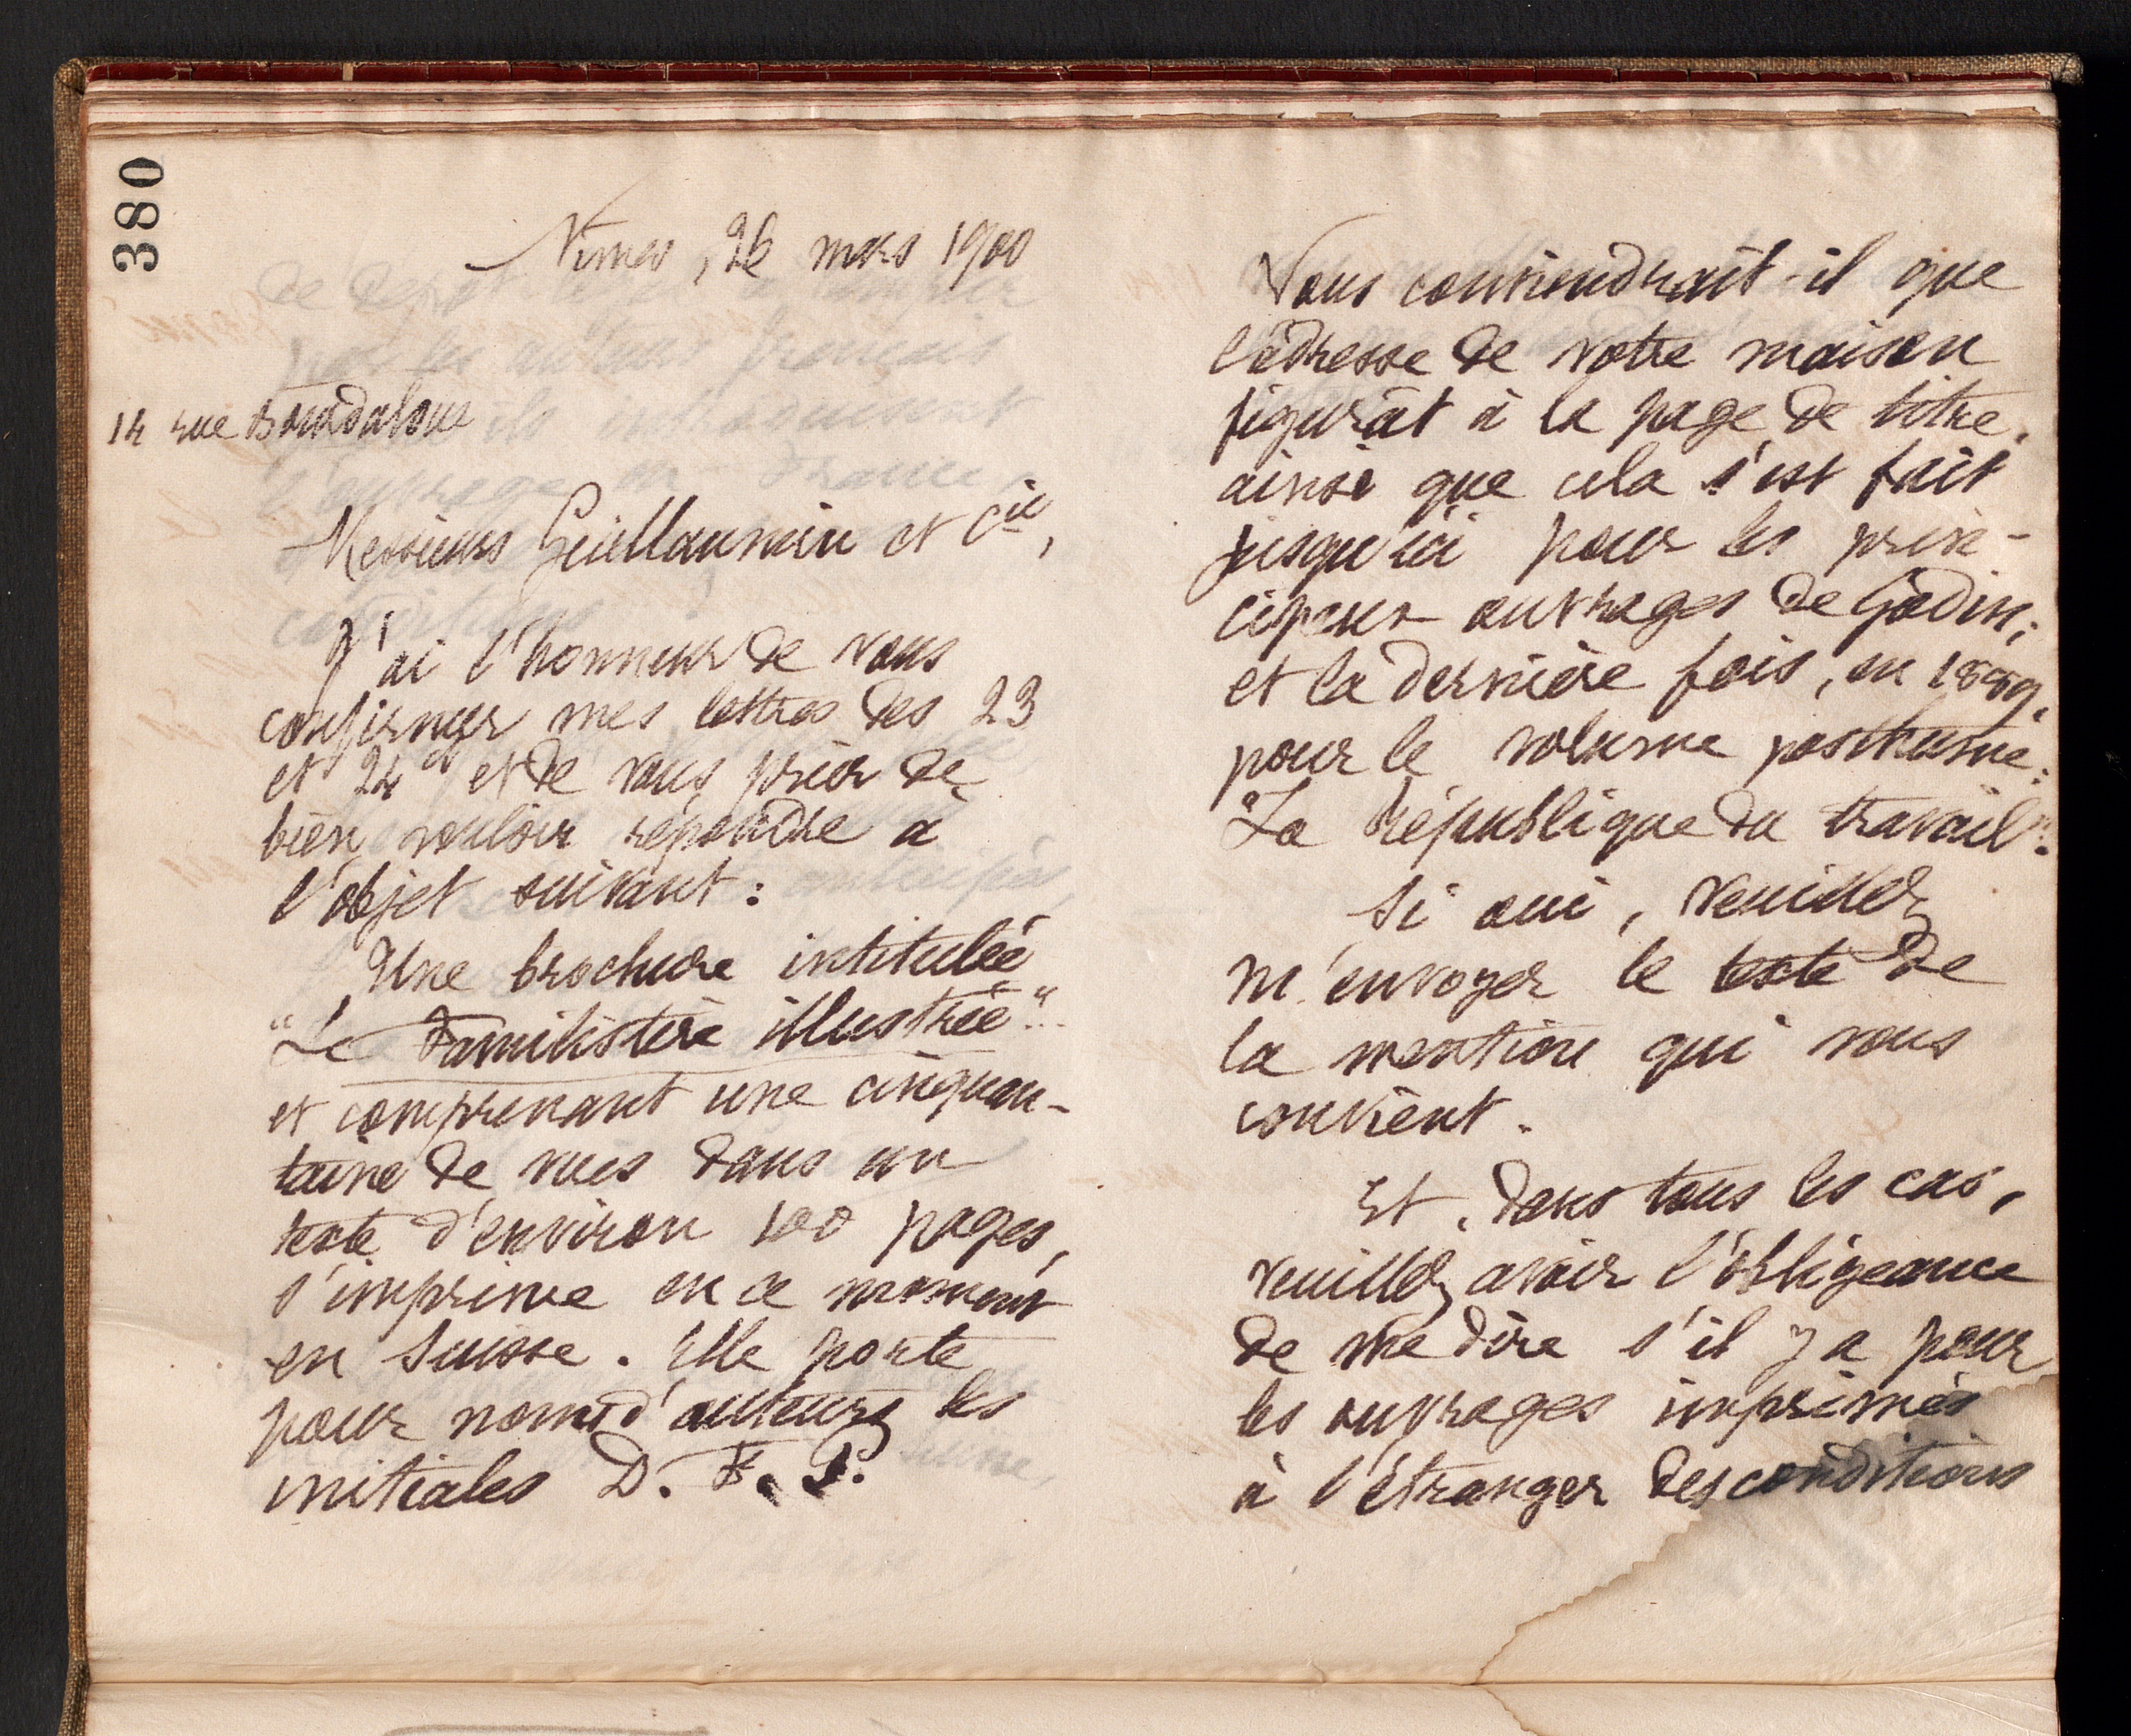 380
Nîmes, 26 mars 1900
14 rue Bourdaloue
Messieurs Guillaumin et Cie,
J'ai l'honneur de vous
confirmer mes lettres des 23
et 24 et de vous prier de
bien vouloir répondre à
l'objet suivant :
Une brochure intitulée
"Le Familistère illustré"
et comprenant une cinquan-
taine de vues dans un
texte d'environ 100 pages,
s'imprime en ce moment
en Suisse. Elle porte
pour noms d'auteurs les
initiales D. F. P.
Vous conviendrait-il que
l'adresse de votre maison
figurât à la page de titre,
ainsi que cela s'est fait
jusqu'ici pour les prin-
cipaux ouvrages de Godin;
et la dernière fois, en 1889,
pour le volume posthume :
"La République du travail".
Si oui, veuillez
m'envoyer le texte de
la mention qui vous
convient.
Et, dans tous les cas,
veuillez avoir l'obligeance
de me dire s'il y a pour
les ouvrages imprimés
à l'étranger des conditions